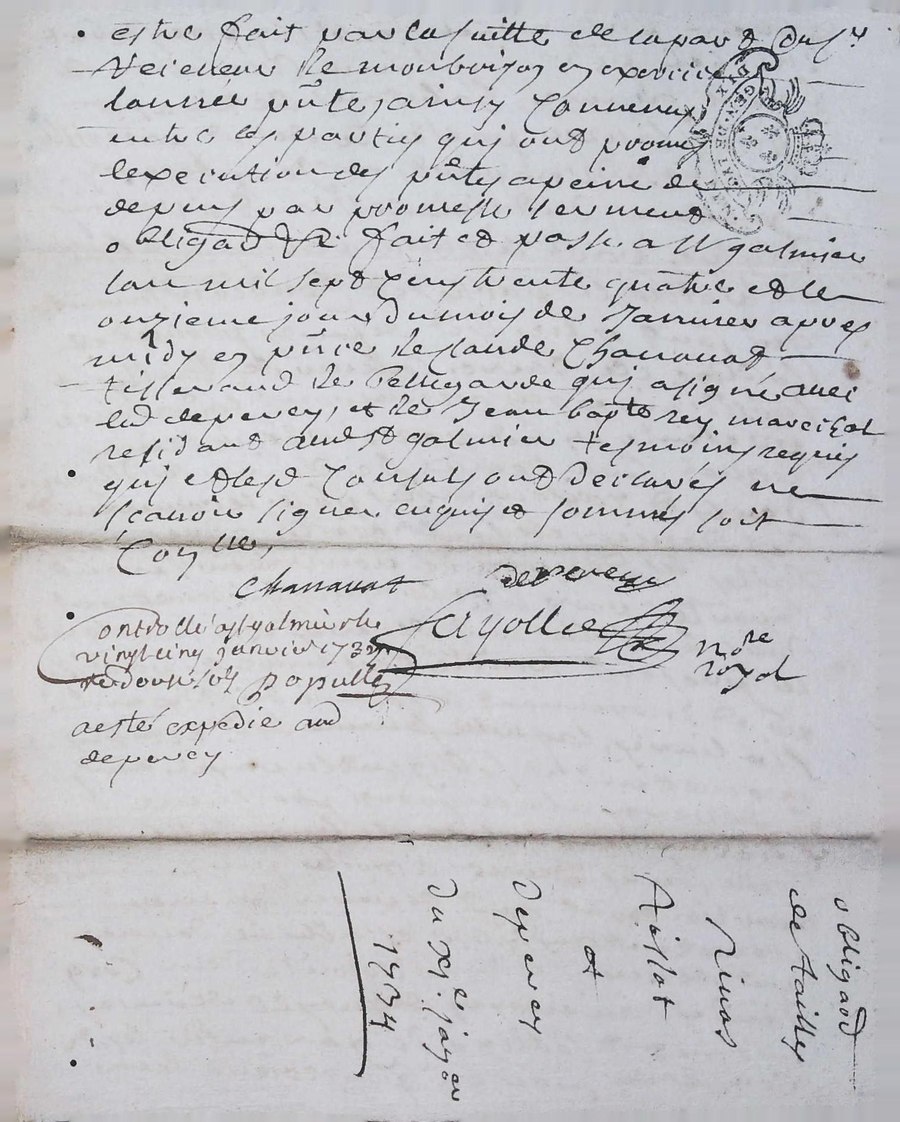 estre fait par la suitte de la part du Sr
Receveur de monbrison en exercice
lannee pnte ainsy convenu
entre les parties qui ont promis
lexecution des pntes a peine de
depens par promesse serment
obligaôn &c fait et passé a St galmier
lan mil sept cens trente quatre et le
onzieme jour du mois de Janvier apres
midy en pnce de claude Chanavat
tisserand de Bellegarde qui a signé avec
led deperey, et de Jean bapte rey marechal
residant aud St galmier tesmoins requis
qui et lesd Consuls ont declarés ne
scavoir signer enquis et sommés soit
Chanavat deperey
controllé a St galmier le
vingt cinq janvier 1734
rd douze sols
not re
royal
a esté expedié aud
deperey
obligaôn
de tailles
et
deperey
du XIe janv
1734